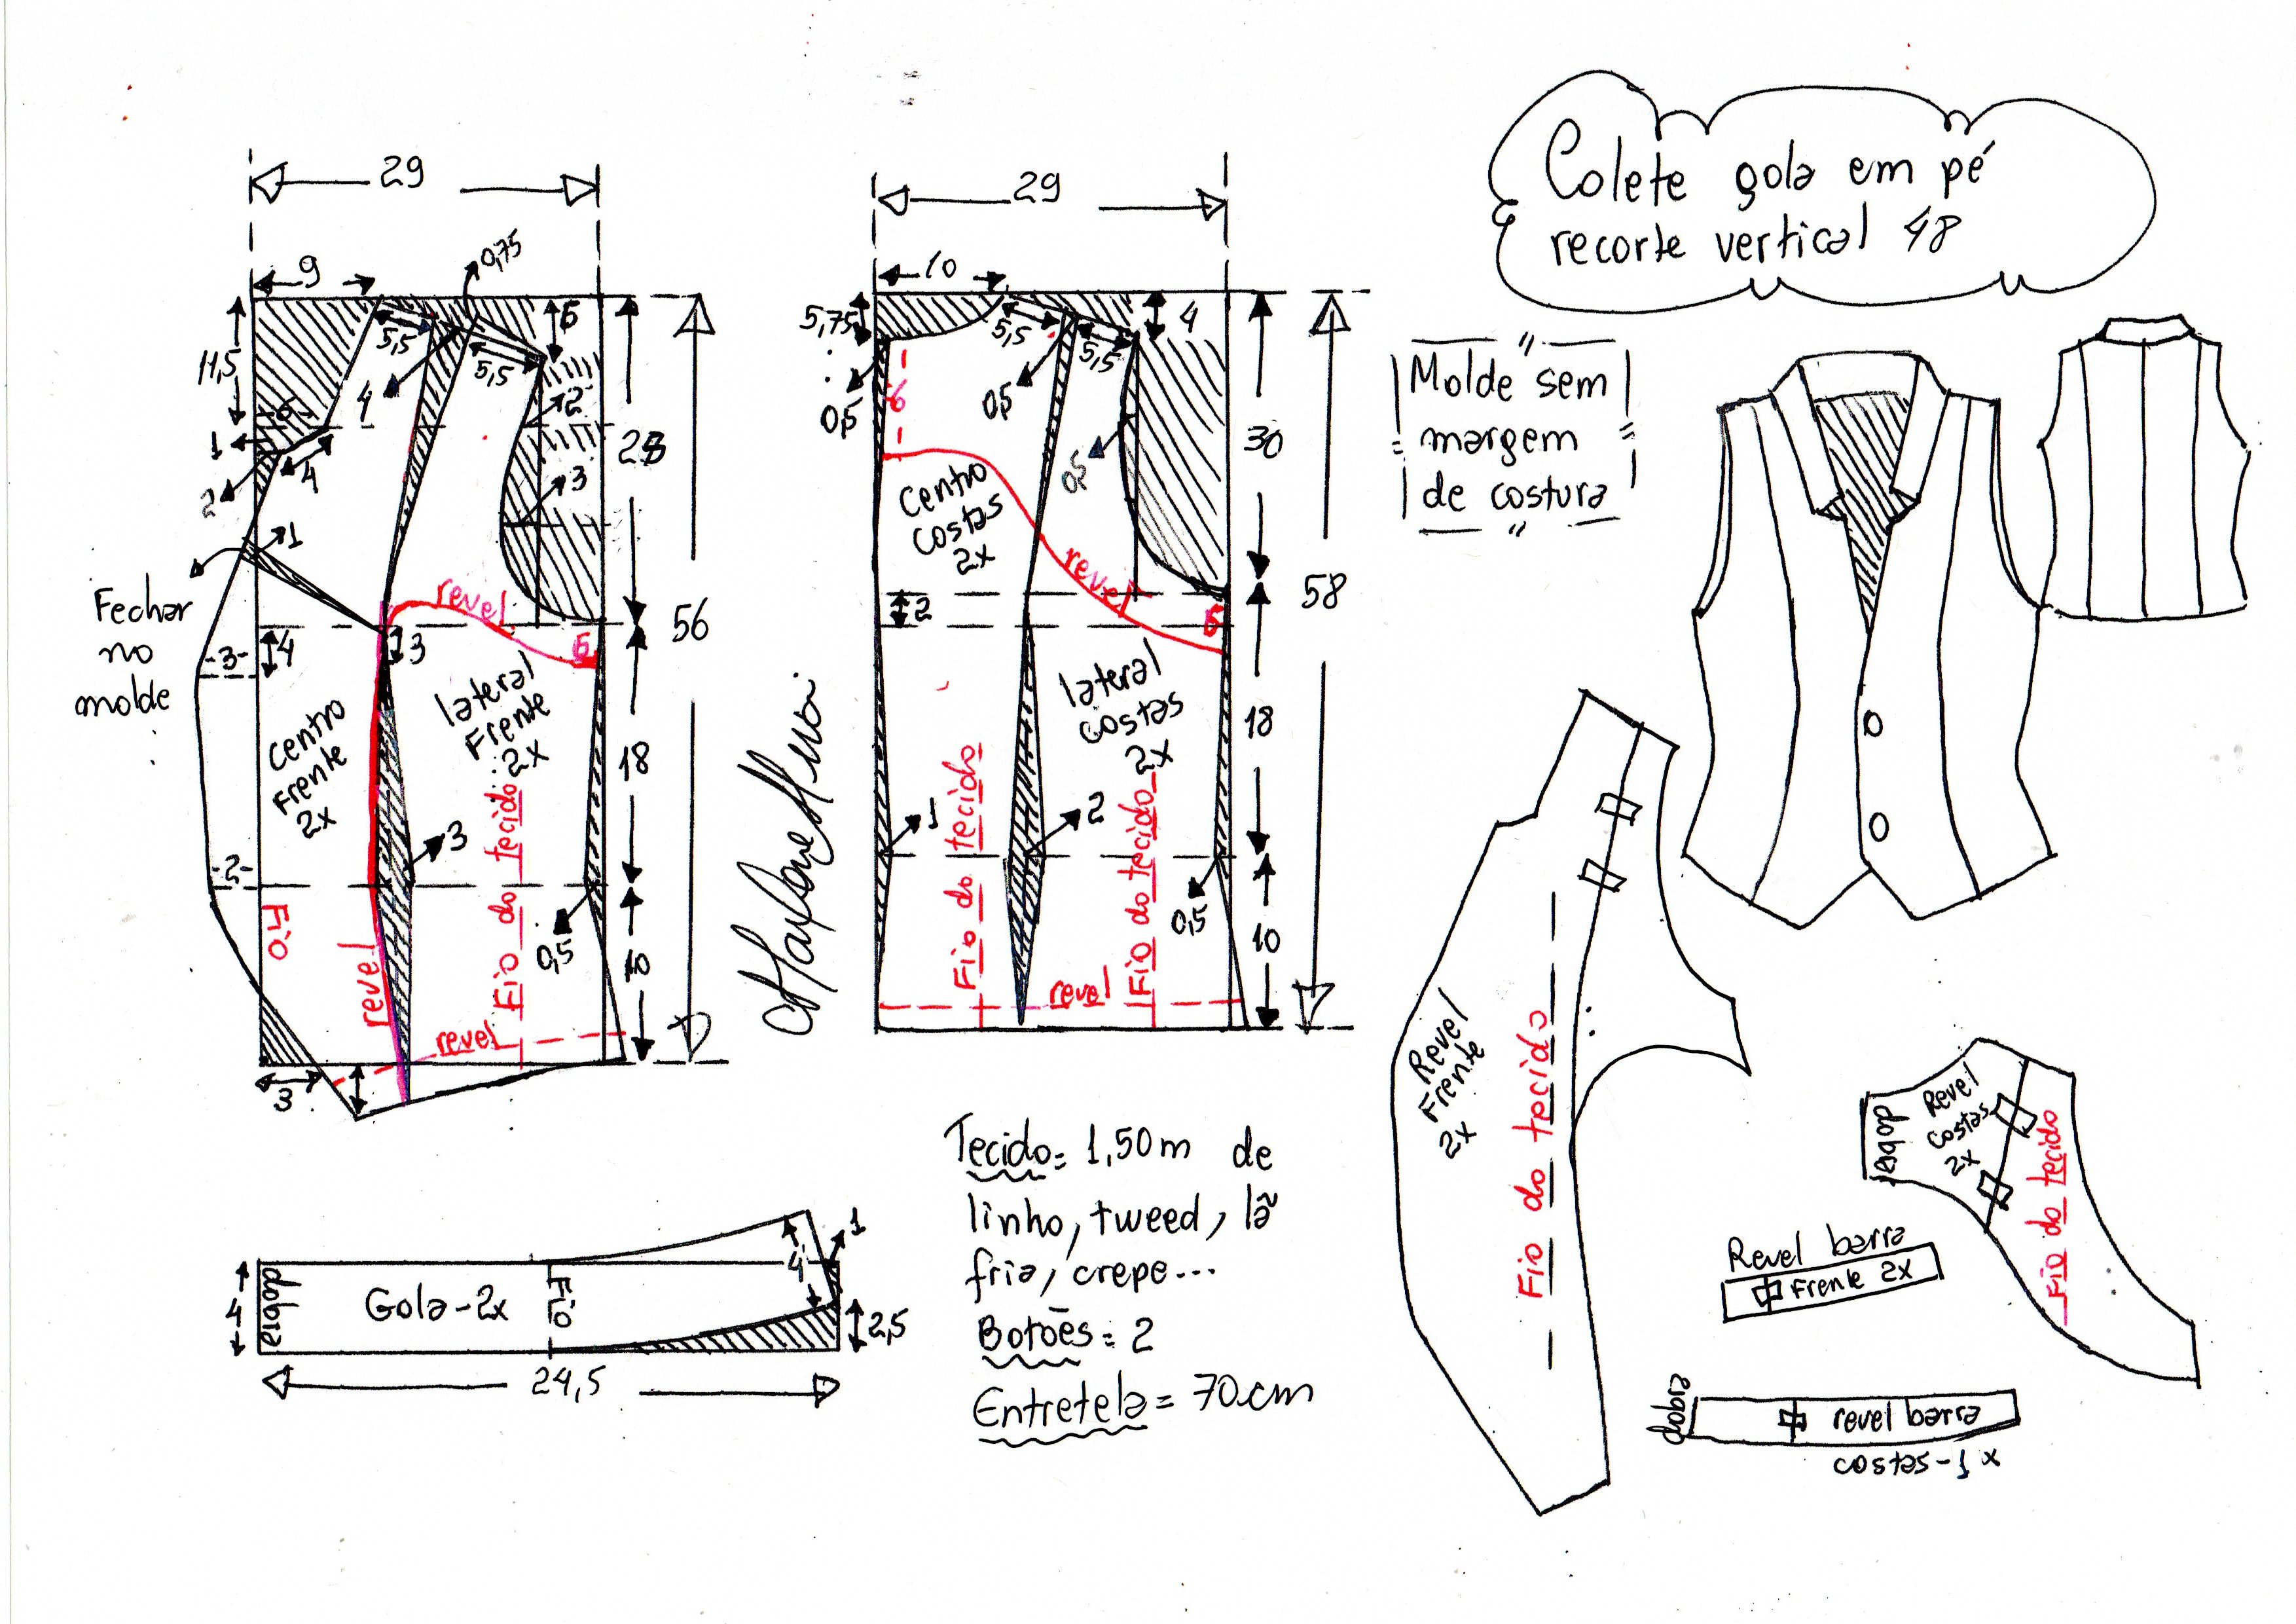 Colete gola em pé
recorte vertical 48
Molde sem
margem
de costura
29
9
0,75
11,5
5,5
5,5
6
1
4
4
2
2
3
1
28
56
Fechar
no
molde
-3-
4
3
revel
6
centro
Frente
2x
lateral
Frente
2x
18
-2-
3
0,5
10
Fio do tecido
revel
revel
3
29
10
5,75
5,5
5,5
4
0,5
0,5
0,5
6
30
58
centro
costas
2x
revel
2
6
lateral
costas
2x
18
1
2
0,5
10
Fio do tecido
Fio do tecido
revel
4
dobra
Gola-2x
4
1
2,5
24,5
Tecido= 1,50m de
linho, tweed, lã
fria, crepe...
Botões= 2
Entretela= 70cm
Revel
Frente
2x
Fio do tecido
dobra
Revel
costas
2x
Fio do tecido
Revel barra
Frente 2x
dobra
revel barra
costas-1x